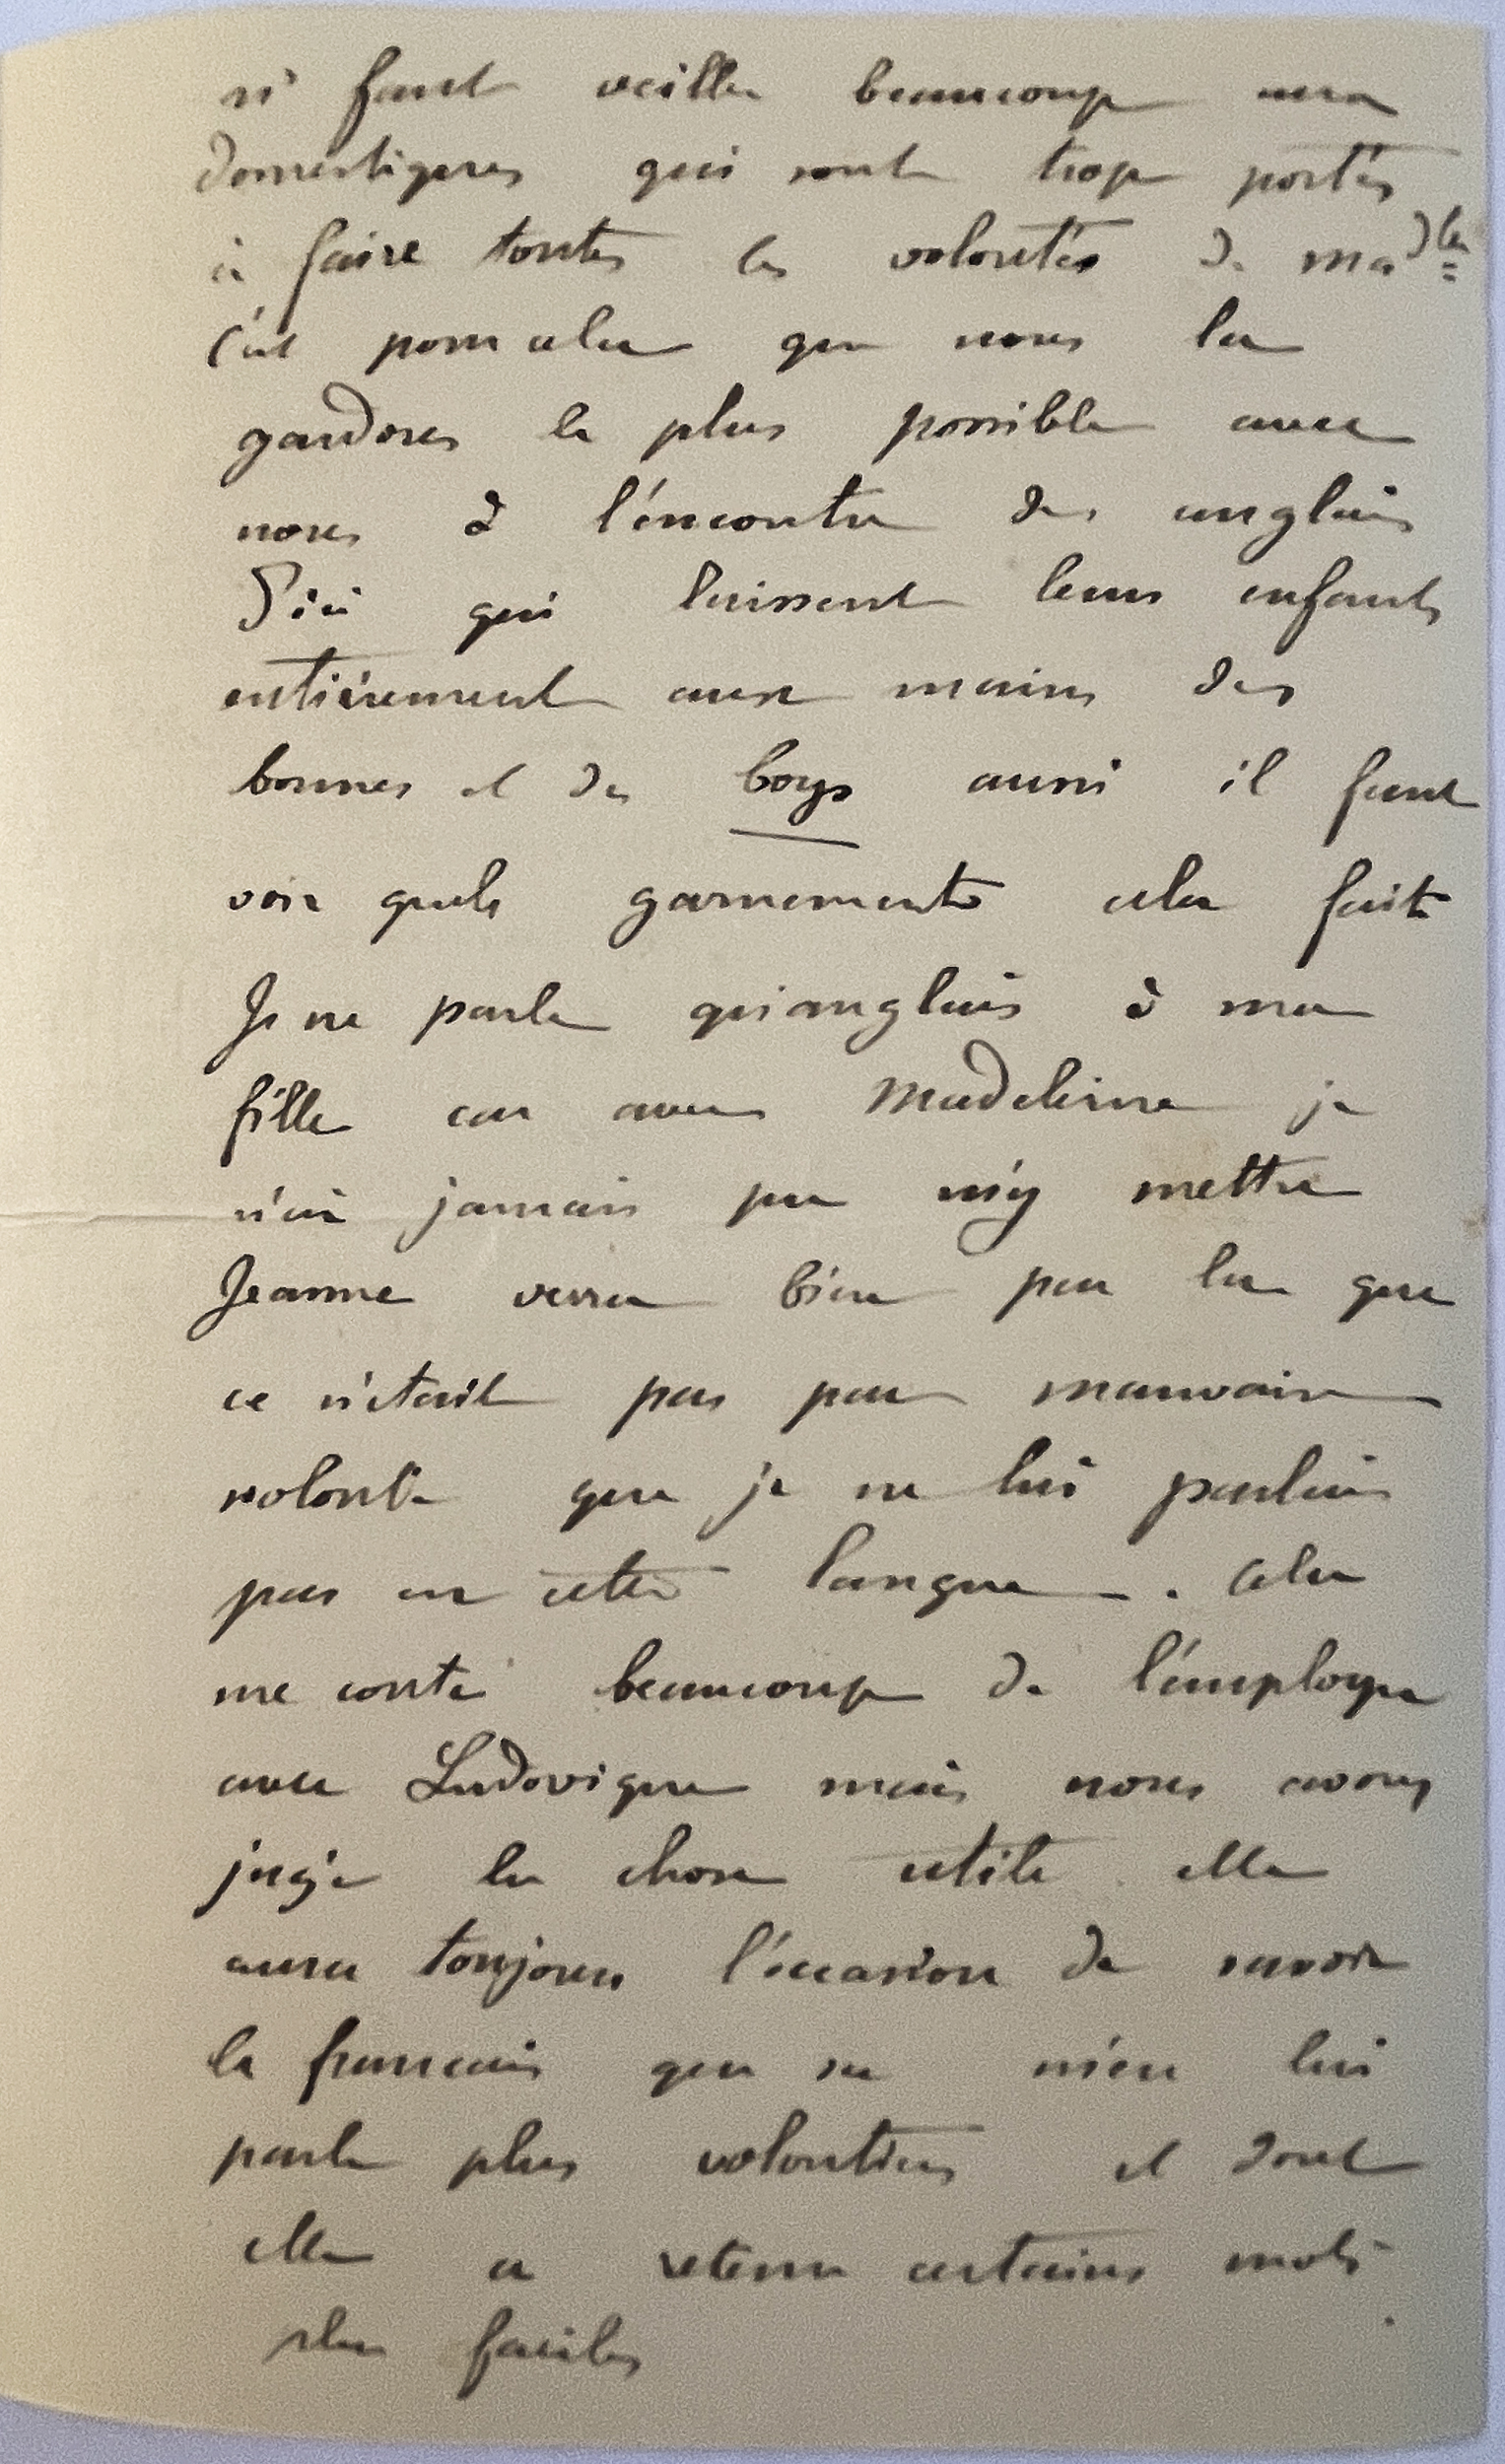 il faut veiller beaucoup aux
domestiques qui sont trop portés
à faire toutes les volontés de ma dlle
c'est pour cela que nous la
gardons le plus possible avec
nous à l'encontre des anglais
d'ici qui laissent leurs enfants
entièrement aux mains des
bonnes et des boys aussi il faut
voir quels garnements cela fait
Je ne parle qu'anglais à ma
fille car avec Madeleine je
n'ai jamais pu m'y mettre
Jeanne verra bien par la que
ce n'était pas par mauvaise
volonté que je ne lui parlais
pas en cette langue. Cela
me coute beaucoup de l'employer
avec Ludovique mais nous avons
jugé la chose utile elle
aura toujours l'occasion de savoir
le francais que sa lui
parle plus volontiers et dont
elle a retenu certains mots
plus faciles